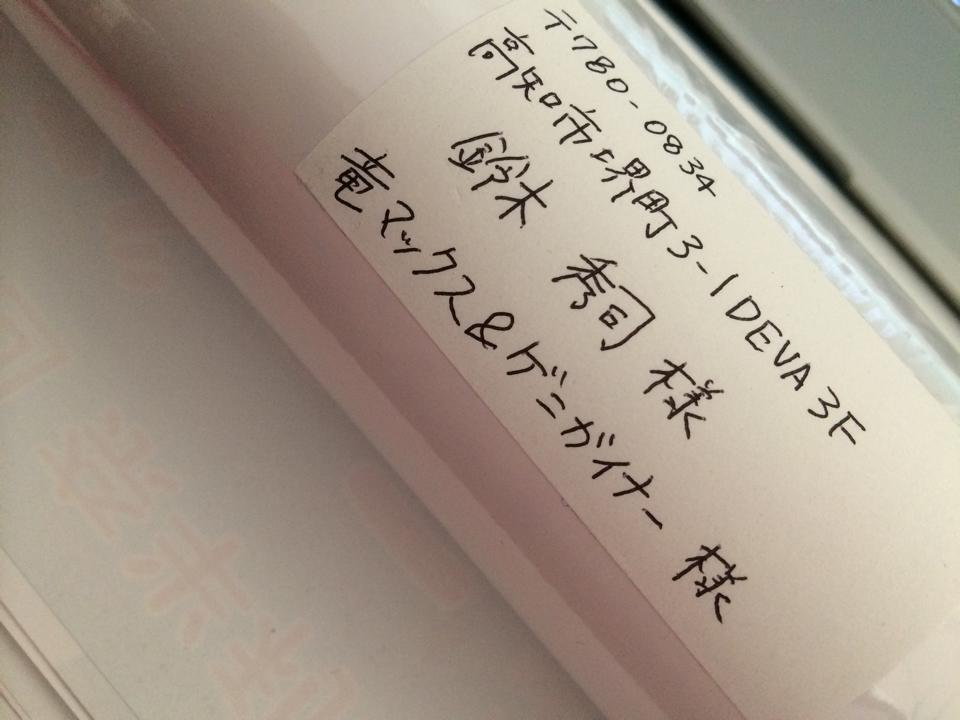 〒780-0834
高知市堺町3-1DEVA3F
鈴木 秀司 様
竜マックス&ゲニガイナー 様